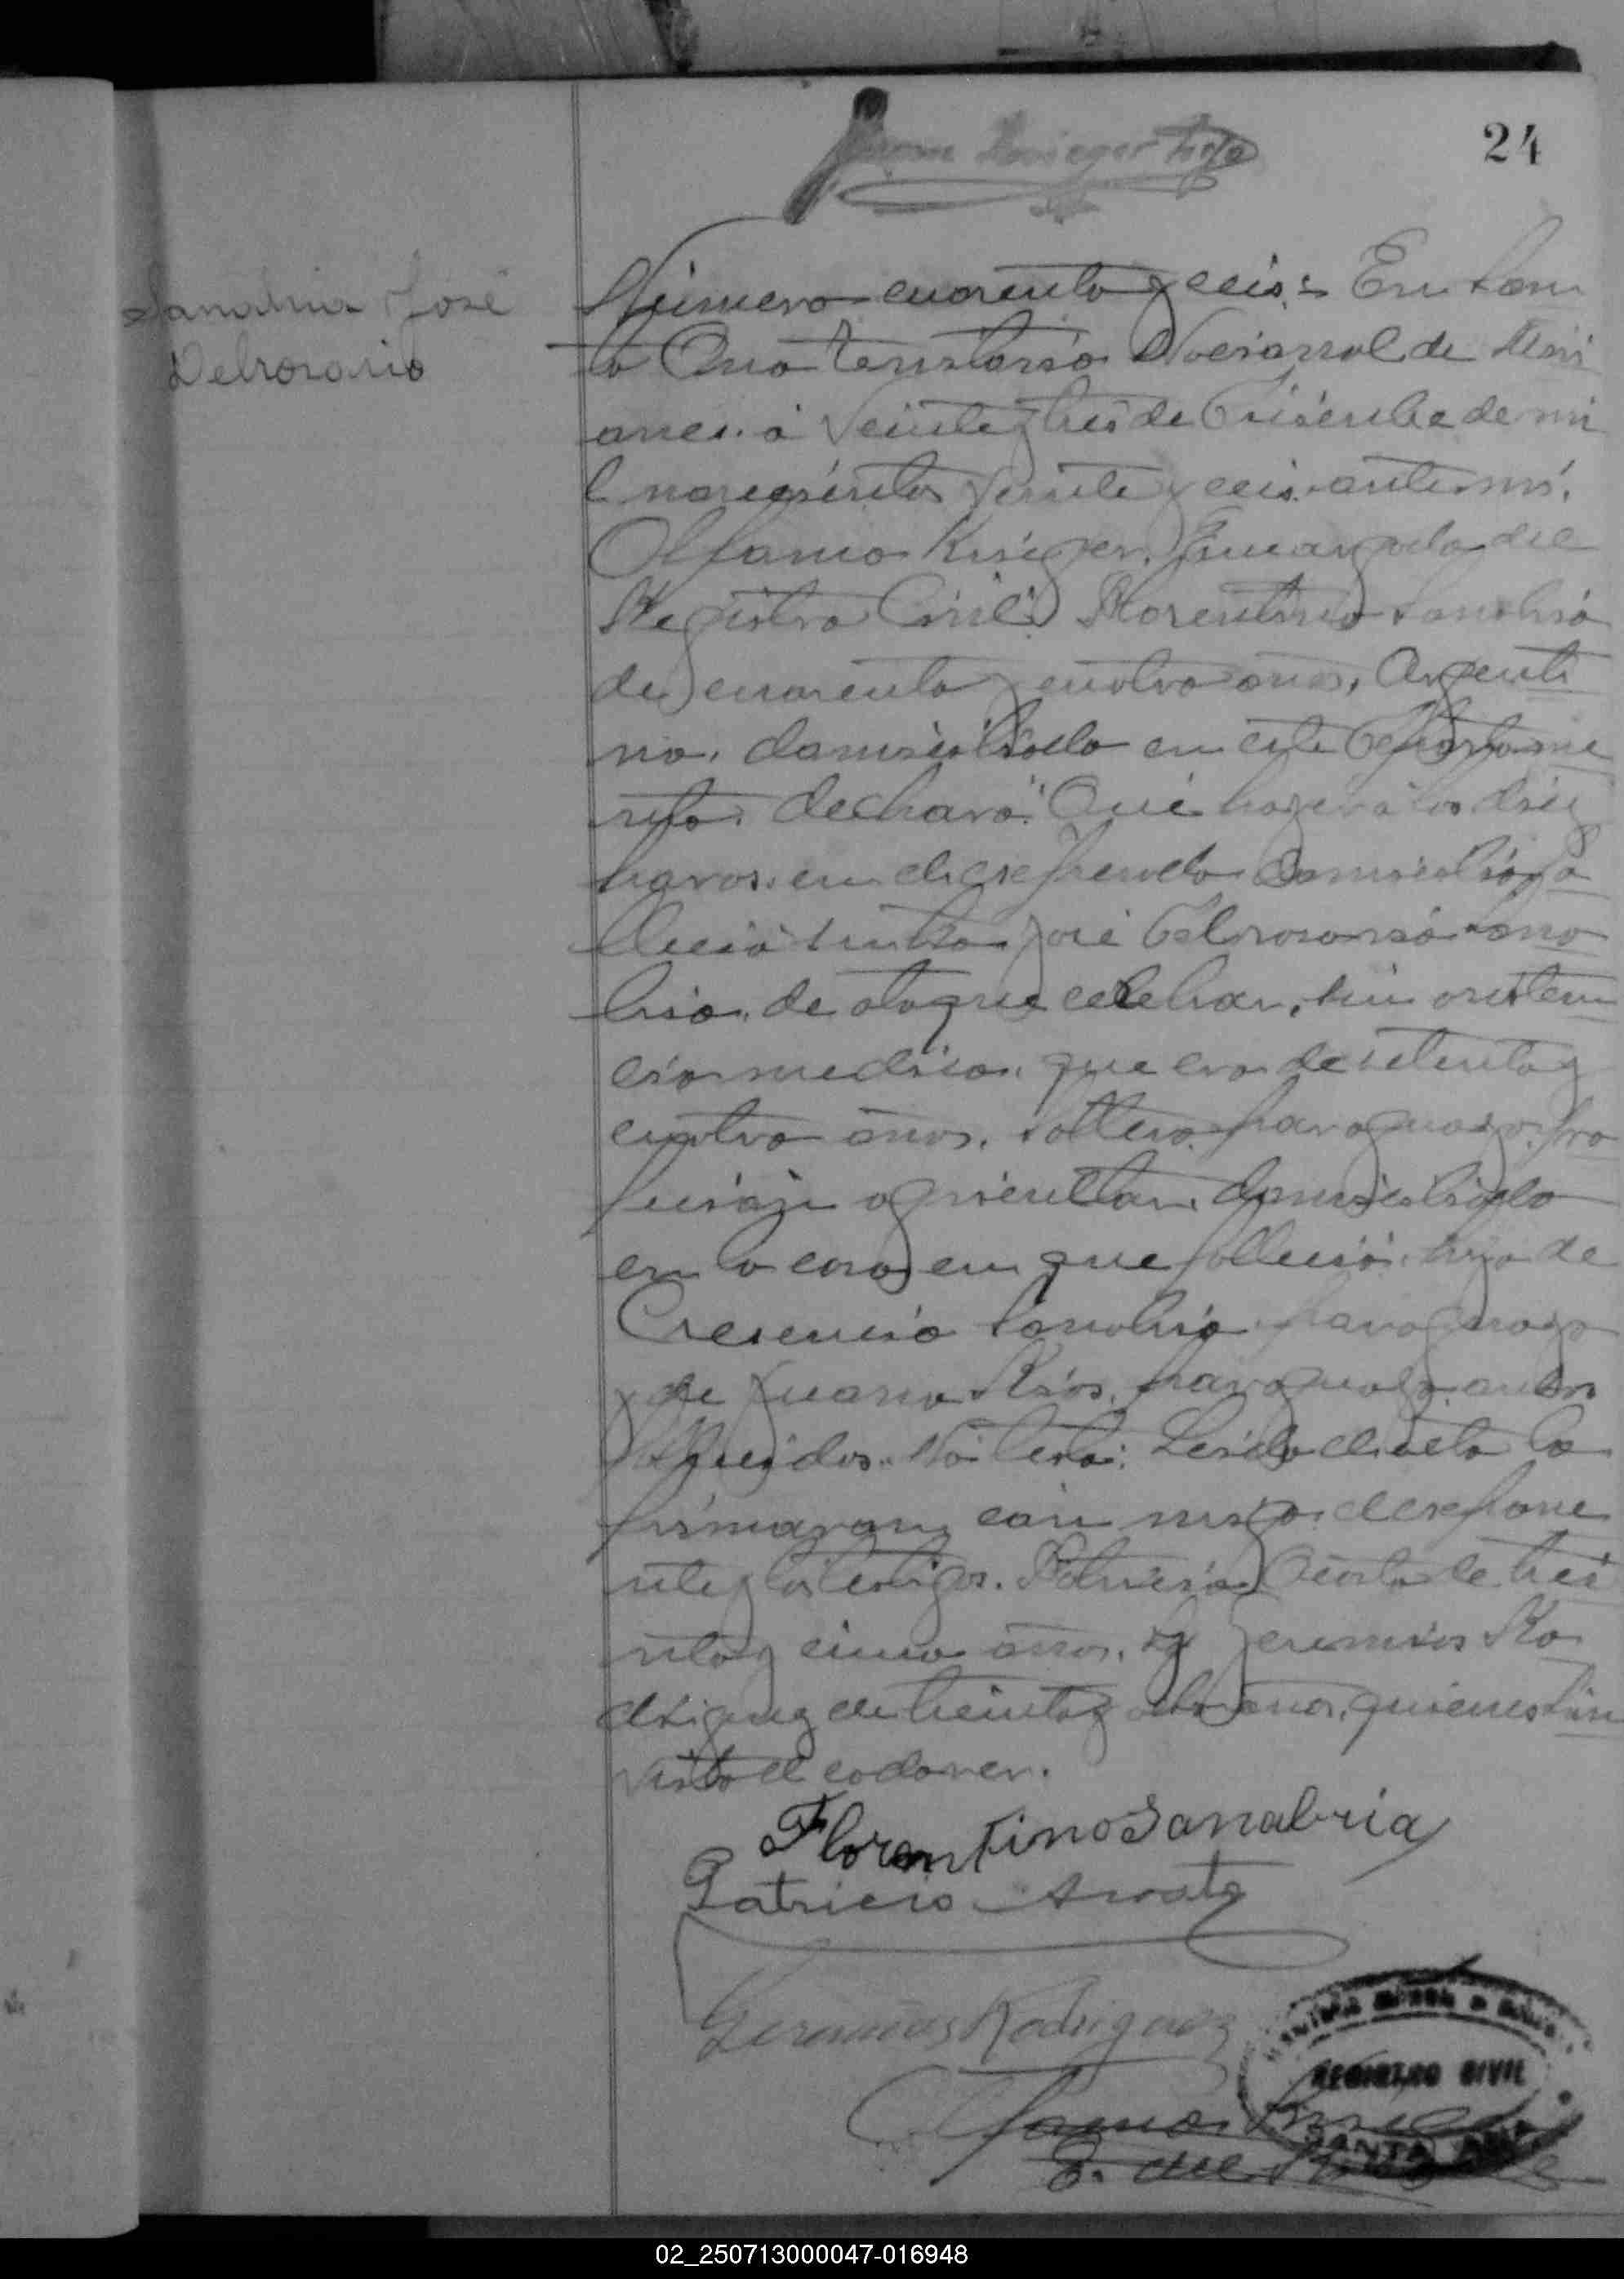 24
Sanabria José
Delrosario
Número cuarenta y ceis: En San
ta Ana Territorio Nacional de Misi
ones. a Veinte y tres de Disienbre de mi
l novesientos Veinte y ceis. ante mi.
Olfanio Krieger. Encargado del
Registro Civil: Florentino Sanabria
de cuarenta y cuatro años, Argenti
no. domisiliado en este Departame
nto. declaró: Que hayer a las diez
horas. en el espresado Domisilio fa
llesió su tio José Delrosario Sana
bria. de ataque celebar. sin asisten
sia medica. que era de setenta y
cuatro años. soltero. paraguayo. pro
fesión agricultor. domisiliado
en la casa en que fallesió. hijo de
Cresencio Sanabria paraguayo
y de Juana Rios. paraguaya. anbos
Leida el acta la
firmaron con migo el espone
nte y los testigos. Patricio de trei
nta y cinco años. y Jeremias Ro
driguez de treinta y ocho años. quienes han
visto el cadaver.
Florentino Sanabria
Patricio
Geremias Rodriguez
REGISTRO CIVIL
SANTA ANA
02_250713000047-016948